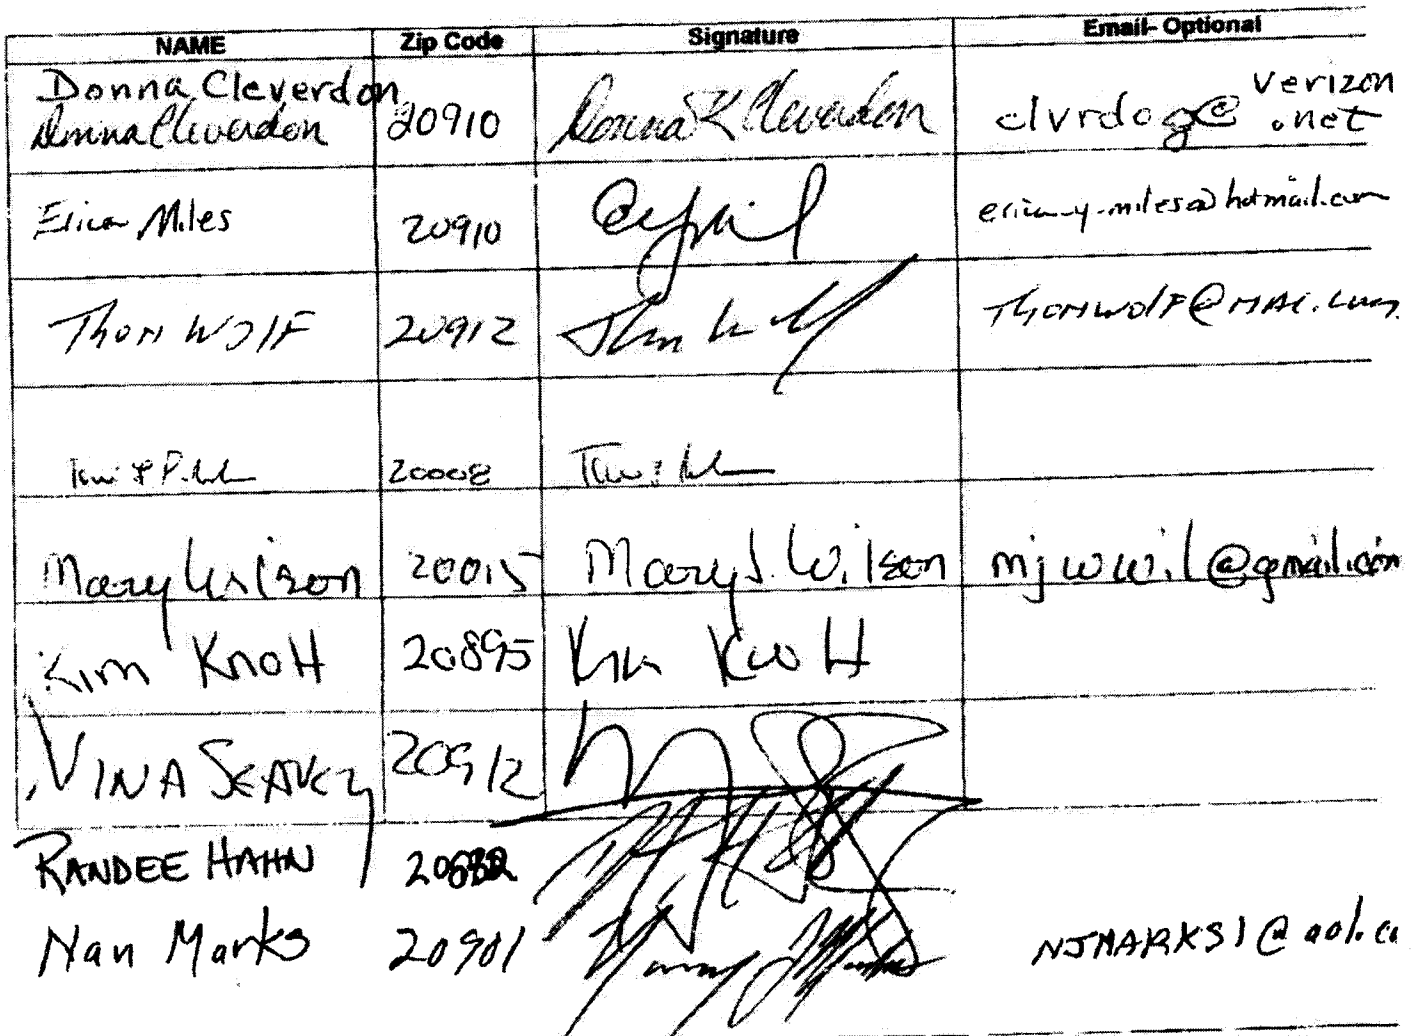 NAME Zip Code Signature Email- Optional
Donna Cleverdon verizon
Donna Cleverdon 20910 Donna K Cleverdon clvrdog@ .net
Erica Miles 20910 erica-y-miles@hotmail.com
Thom Wolf 20912 Thom Wolf Thomwolf@mac.com
20008
Mary Wilson 20015 Mary J. Wilson mjwwil@gmail.com
Kim Knott 20895 Kim Knott
VINA SEAVEY 20912
RANDEE HAHN
Nan Marks 20901 Nancy Marks NJMARKS1@aol.co